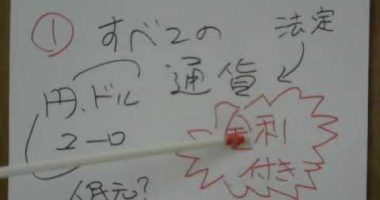 ① すべての
法定
通貨
円、ドル
ユーロ
金利
付き
人民元?